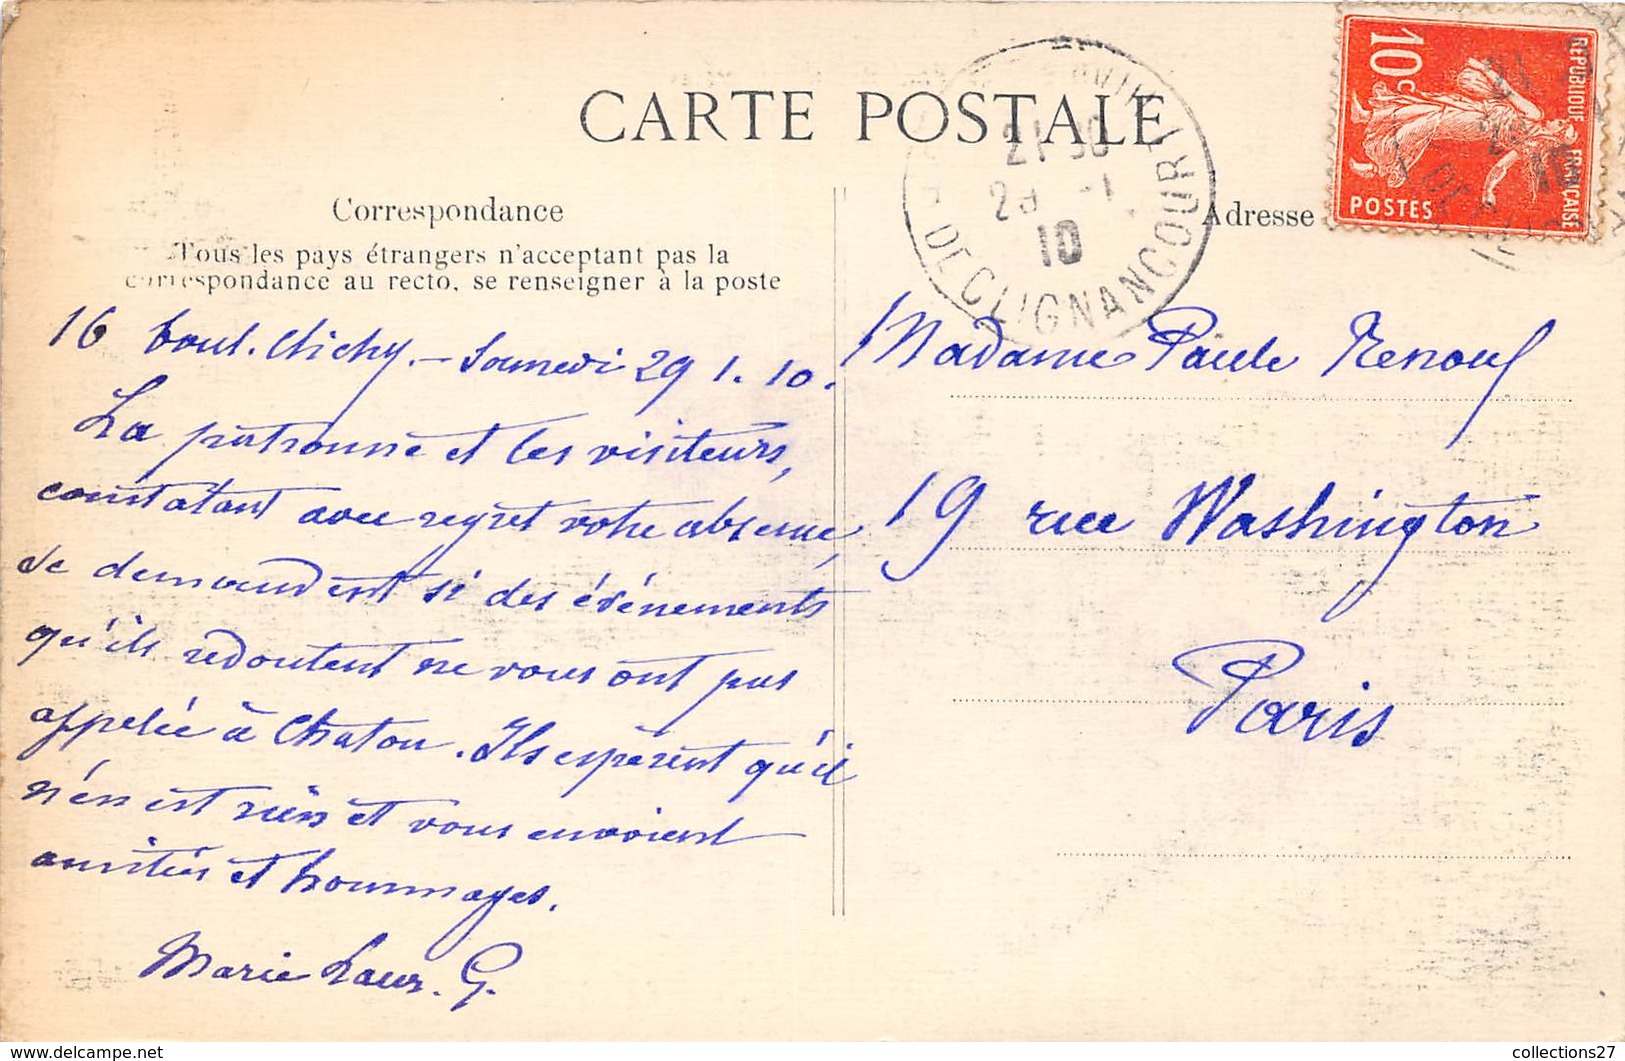 CARTE POSTALE
Correspondance
Tous les pays étrangers n'acceptant pas la
correspondance au recto, se renseigner à la poste
16 boul. Clichy. - Samedi 29 1. 10.
La patronne et les visiteurs,
constatant avec regret votre absence,
se demandent si des événements
qu'ils redoutent ne vous ont pas
appelée à Chatou. Ils espèrent qu'il
n'en est rien et vous envoient
amitiés et hommages.
Marie Laur. G.
21 30
29 -1
10
DE CLIGNANCOURT
Adresse
10c
REPUBLIQUE FRANÇAISE
POSTES
Madame Paule Renouf
19 rue Washington
Paris
collections27